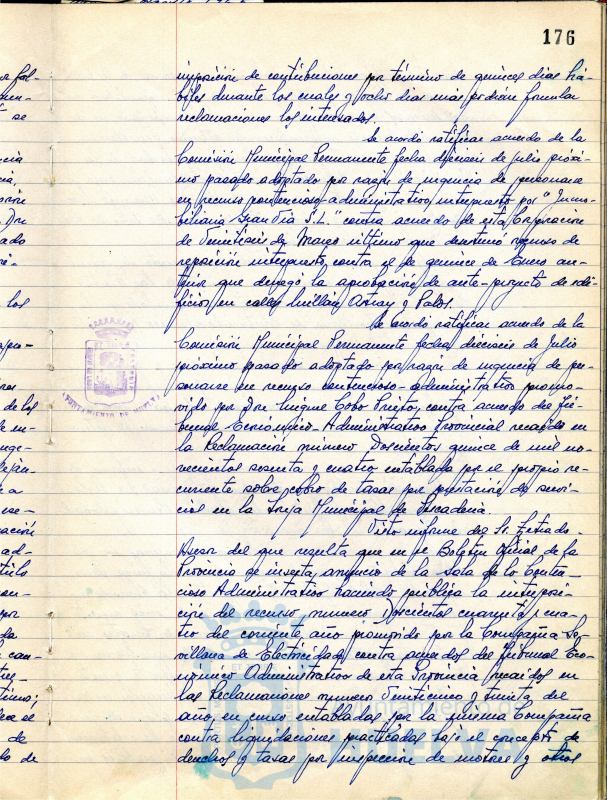 176
imposición de contribuciones por término de quince días há-
biles durante los cuales y ocho días más podrán formular
reclamaciones los interesados.
Se acordó ratificar acuerdo de la
Comisión Municipal Permanente fecha dieciseis de Julio próxi-
mo pasado adoptado por razón de urgencia de personarse
en recurso contencioso-administrativo, interpuesto por "Inmo-
biliaria Gran Vía S.L." contra acuerdo de esta Corporación
de Veintiseis de Marzo último que desestimó recurso de
reposición interpuesto contra el de quince de Enero an-
terior que denegó la aprobación de ante-proyecto de edi-
ficios en calles Millán Astray y Palos.
Se acordó ratificar acuerdo de la
Comisión Municipal Permanente fecha dieciseis de Julio
próximo pasado adoptado por razón de urgencia de per-
sonarse en recurso contencioso-administrativo promo-
vido por Don Miguel Cobo Prieto, contra acuerdo del Tri-
bunal Económico-Administrativo Provincial recaido en
la Reclamación número Doscientos quince de mil no-
vecientos sesenta y cuatro entablada por el propio re-
currente sobre cobro de tasas por prestación de servi-
cios en la Lonja Municipal de Pescadería.
Visto informe del Sr. Letrado-
Asesor del que resulta que en el Boletín Oficial de la
Provincia se inserta anuncio de la Sala de lo Conten-
cioso Administrativo haciendo pública la interposi-
ción del recurso número Doscientos cuarenta y cua-
tro del corriente año promovido por la Compañía Se-
villana de Electricidad contra acuerdos del Tribunal Eco-
nómico Administrativo de esta Provincia recaidos en
las Reclamaciones número Veinticinco y treinta del
año en curso entabladas por la misma Compañía
contra liquidaciones practicadas bajo el concepto de
derechos y tasas por inspección de motores y otros
AYUNTAMIENTO DE HUELVA
Ayuntamiento de
HUELVA